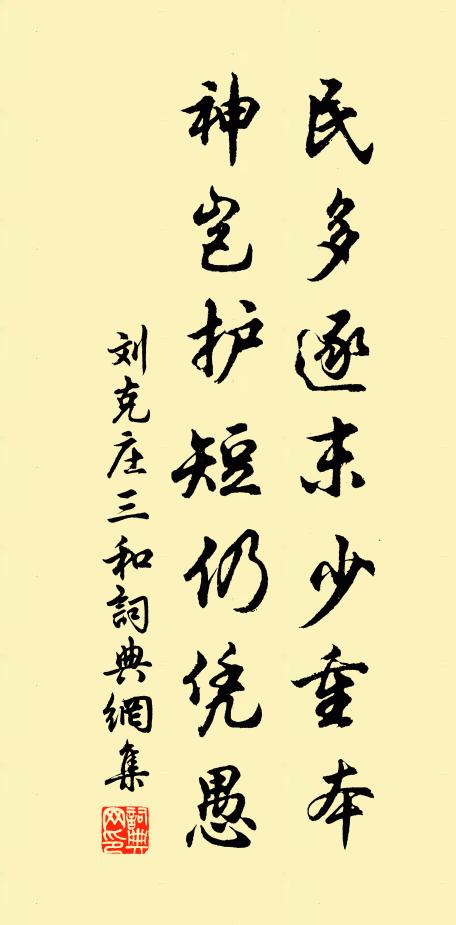 民多逐末少重本
神岂护短仍凭愚
刘克庄三和詞典網集
詞典网印